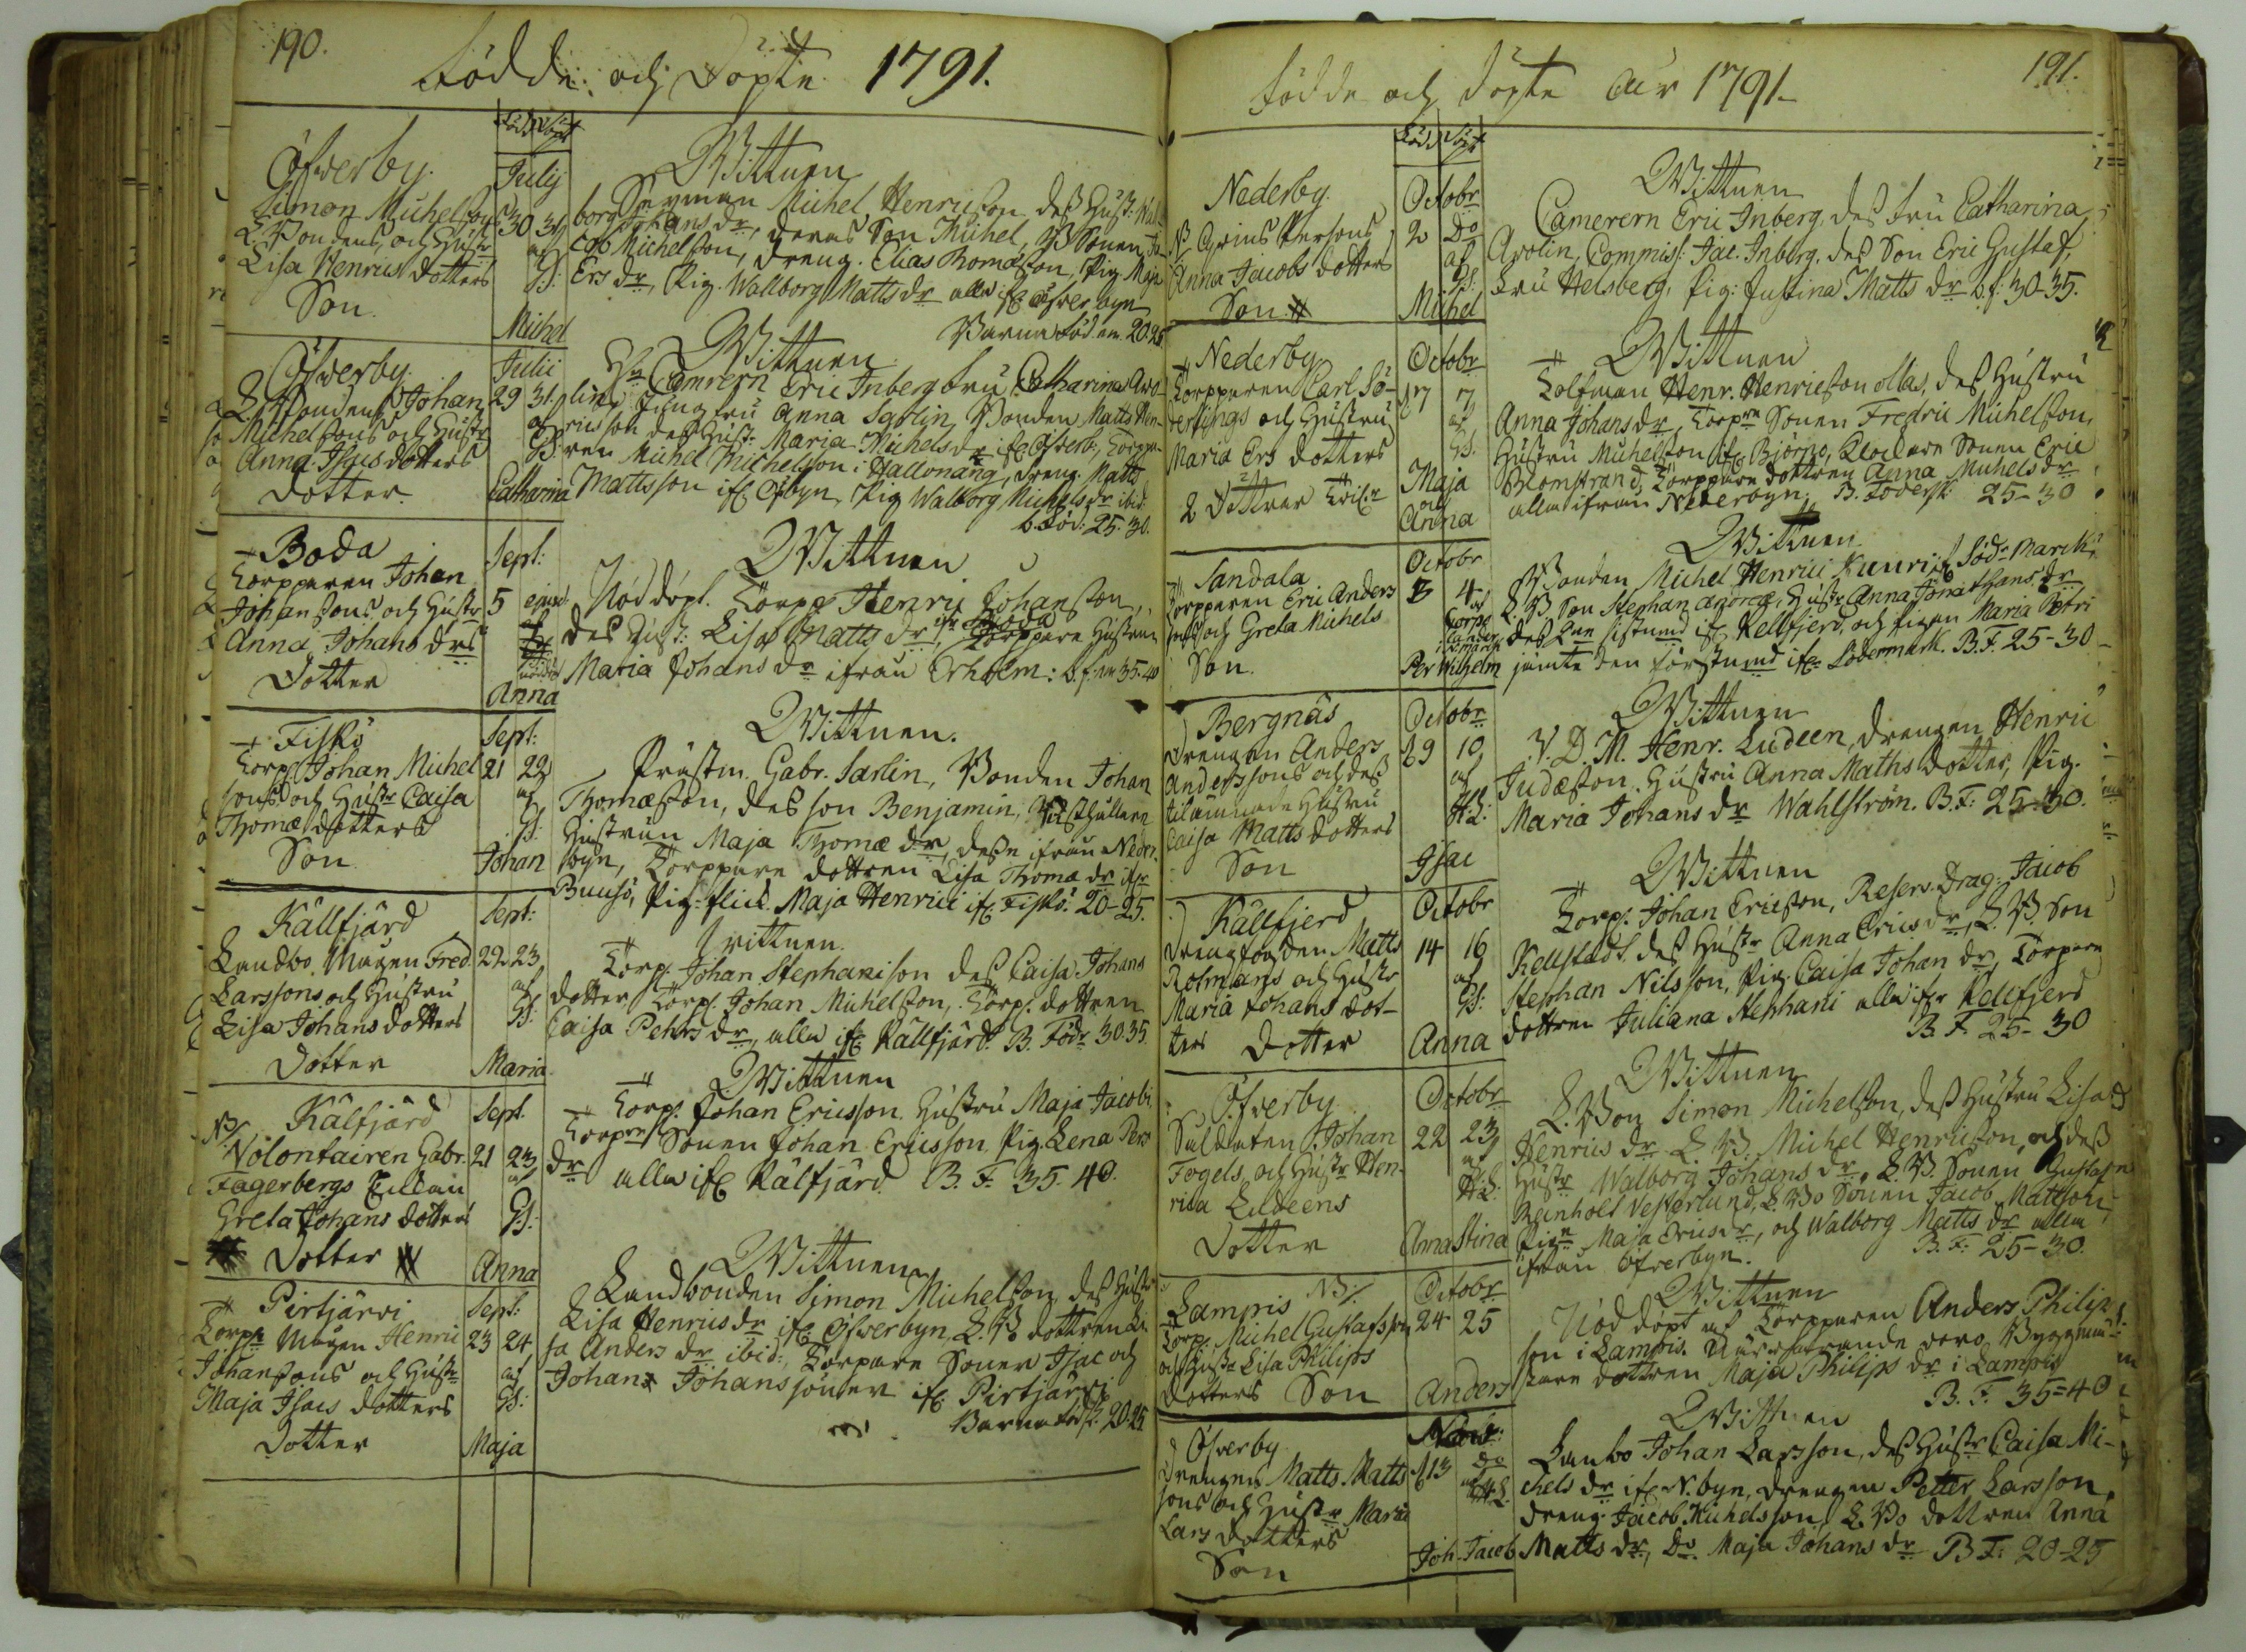 190.
Födde och Döpte 1791.
Född Döpt
Öfverby.
Simon Michelsons
L. Bondens, och Hustr
Lisa Henrics dotters
Son.
Julij
30 31
af
GS:
Michel
Wittnen
Michel Henricson, dess Hust: Wall
borg Johans dr, deras Son Michel, B Sonen Ja
cob Michelson, dreng. Elias Thomason, Pig. Maja
Ers dr, Pig. Wallborg Matts dr alla if Öfver byn
Barnaföd. 20.25
Öfverby.
L. Bondens Johan
Michelsons och Hustr
Anna Isacs dotters
dotter.
Julii
29 31.
af
GS:
Catharina
Wittnen
Hr Camrern Eric Inberg fru Catharina Aro-
lin, fru Anna Sarlin, Bonden Matts Hen-
ricsson dess Hust: Maria Michels dr if Öfverb:, Torpa-
ren Michel Michelson i Hallonäng, dreng. Matts
Mattsson if Öfbyn, Pig Walborg Michels dr ibid:
b. Föd: 25. 30.
Boda
Torpparen Johan
Johansons och Hustr
Anna Johans drs
Dotter
Sept:
5 ejusd
Anna
Wittnen
Nöddöpt. Torpp Henric Johanson,
des Hust: Lisa Matts dr ifr Boda, Torppare Hustrun
Maria Johans dr ifrån Erholm: b. f. 35.40
Fiskö
Torp. Johan Michel
sons och Hustr Caisa
Thomæ dotters
Son
Sept:
21 22
af
GS:
Johan
Wittnen.
Prästm. Gabr. Sarlin, Bonden Johan
Thomæson, des son Benjamin,
Hustrun Maja Thomæ dr, desse ifrån Neder
byn, Torppare dottren Lisa Thomæ dr ifr
Buusö, Pig: flick. Maja Henrici if Fiskö. 20-25.
Källfjärd
Landbo. Mågen Fred.
Larssons och Hustru
Lisa Johans dotters
Dotter
Sept:
22 23
af
GS:
Maria
Wittnen.
Torp. Johan Stephanison des Caisa Johans
dotter, Torp. Johan Michelson, Torp. dottren
Caisa Pehrs dr, alla if Källfjärd. B. Föd: 30.35.
NB/ Kälfjärd
Volontairen Gabr.
Fagerbergs Enkan
Greta Johans dotters
Dotter
Sept.
21 23
af
GS:
Anna
Wittnen
Torp. Johan Ericsson. Hustru Maja Jacobi
Torpre Sonen Johan Ericsson, Pig. Lena Pers
dr alla if Kälfjärd. B. F. 35. 40.
Pirtjärvi
Torpre Mågen Henric
Johansons och Hustr
Maja Isacs dotters
Dotter
Sept:
23 24
af
GS:
Maja
Wittnen
Landbonden Simon Michelson, des Hustr
Lisa Henrics dr if Öfverbyn, L. B. dottren Li
sa Anders dr ibid:, Torpare Soner Isac och
Johans Johanssöner if Pirtjärvi
Barnaföd. 20.25
191.
Födde och döpte År 1791.
Född Döpt
Nederby.
Anna Jacobs dotters
Son
Octobr
2 Do
af
GS:
Michel
Wittnen
Camerern Eric Inberg, des fru Catharina
Arolin, Commiss: Jac. Inberg, des Son Eric Gustaf,
fru Helsberg, Pig: Justina Matts dr b. f: 30-35.
Nederby
Torpparen Carl Sö-
derlings och Hustru
Maria Ers dotters
2 Döttrar
Octobr
17
af
GS.
Maja
och
Anna
Wittnen
Henr. Henricson ollas, des Hustru
Anna Johans dr, Torpre Sonen Fredric Michelson,
Hustru Michelson if Björnö, Klockare Sonen Eric
Blomstrand, Torppare dottren Anna Michels dr
alla ifrån Nederbyn. B. Föders: 25-30
Sandala
Torpparen Eric Anders
sons och Greta Michels
Son.
Octobr
3 4
af
Per Wilhelm
Wittnen.
Bonden Michel Henrici Kuuri if Södr Marck
L B Son Stephan Andreæ, Hustr Anna Jonathans dr
des sistnemd if Kellfjerd, och Pigan Maria Petri
jämte den förstnemd ifr Södermark. B. F. 25-30
Bergnäs
Drengen Anders
Anderssons och dess
tilämnade Hustru
Caisa Matts dotters
Son
Octobr
29 10
af
HL:
Isac
Wittnen
V. D. M. Henr. Ludeen, drengen Henric
Judæson. Hustru Anna Maths dotter, Pig.
Maria Johans dr Wahlström. B. F: 25-30.
Källfjerd
Matts
Rotmans och Hustr
Maria Johans dot-
ters Dotter
Octobr
14 16
af
GS:
Anna
Wittnen
Torp. Johan Ericson, Reserv. Drag: Jacob
Kellstedt. des Hustr Anna Erics dr, L. B. Son
Stephan Nilsson, Pig. Caisa Johan dr, Torpare
dottren Juliana Stephani alla ifr Kellfjerd
B. F. 25-30
Öfverby
Soldaten Johan
Fogels, och Hustr Hen-
rica Ludeens
Dotter
Octobr
22 23
af
HL:
Anna Stina
Wittnen
L. Bon Simon Michelson, dess Hustru Lisa
Henrics dr L B. Michel Henricson och dess
Hustr Walborg Johans dr, L. B. Sonen Gustaf
Reinhold Vesterlund, L. Bo Sonen Jacob Mattson,
Pign Maja Erics dr, och Walborg Matts dr alla
ifrån Öfverbyn. B. F: 25-30.
Lampis NB/.
Torp. Michel Gustafsson
och Hustr Lisa Philips
dotters Son
Octobr
24 25
Anders
Wittnen
Nöddöpt af Torpparen Anders Philip
son i Lampis. Närvarande voro
dottren Maja Philips dr i Lampis
B. F. 35=40
Öfverby
Drengen Matts Matts
sons och Hustr Maria
Lars dotters
Son
13 do
af HL.
Joh. Jacob
Wittnen
Lanbo Johan Larsson, des Hustr Caisa Mi-
chels dr if N. byn, drengen Petter Larsson,
dreng. Jacob Michelsson, L. Bo dottren Anna
Matts dr, Do. Maja Johans dr B F: 20-25